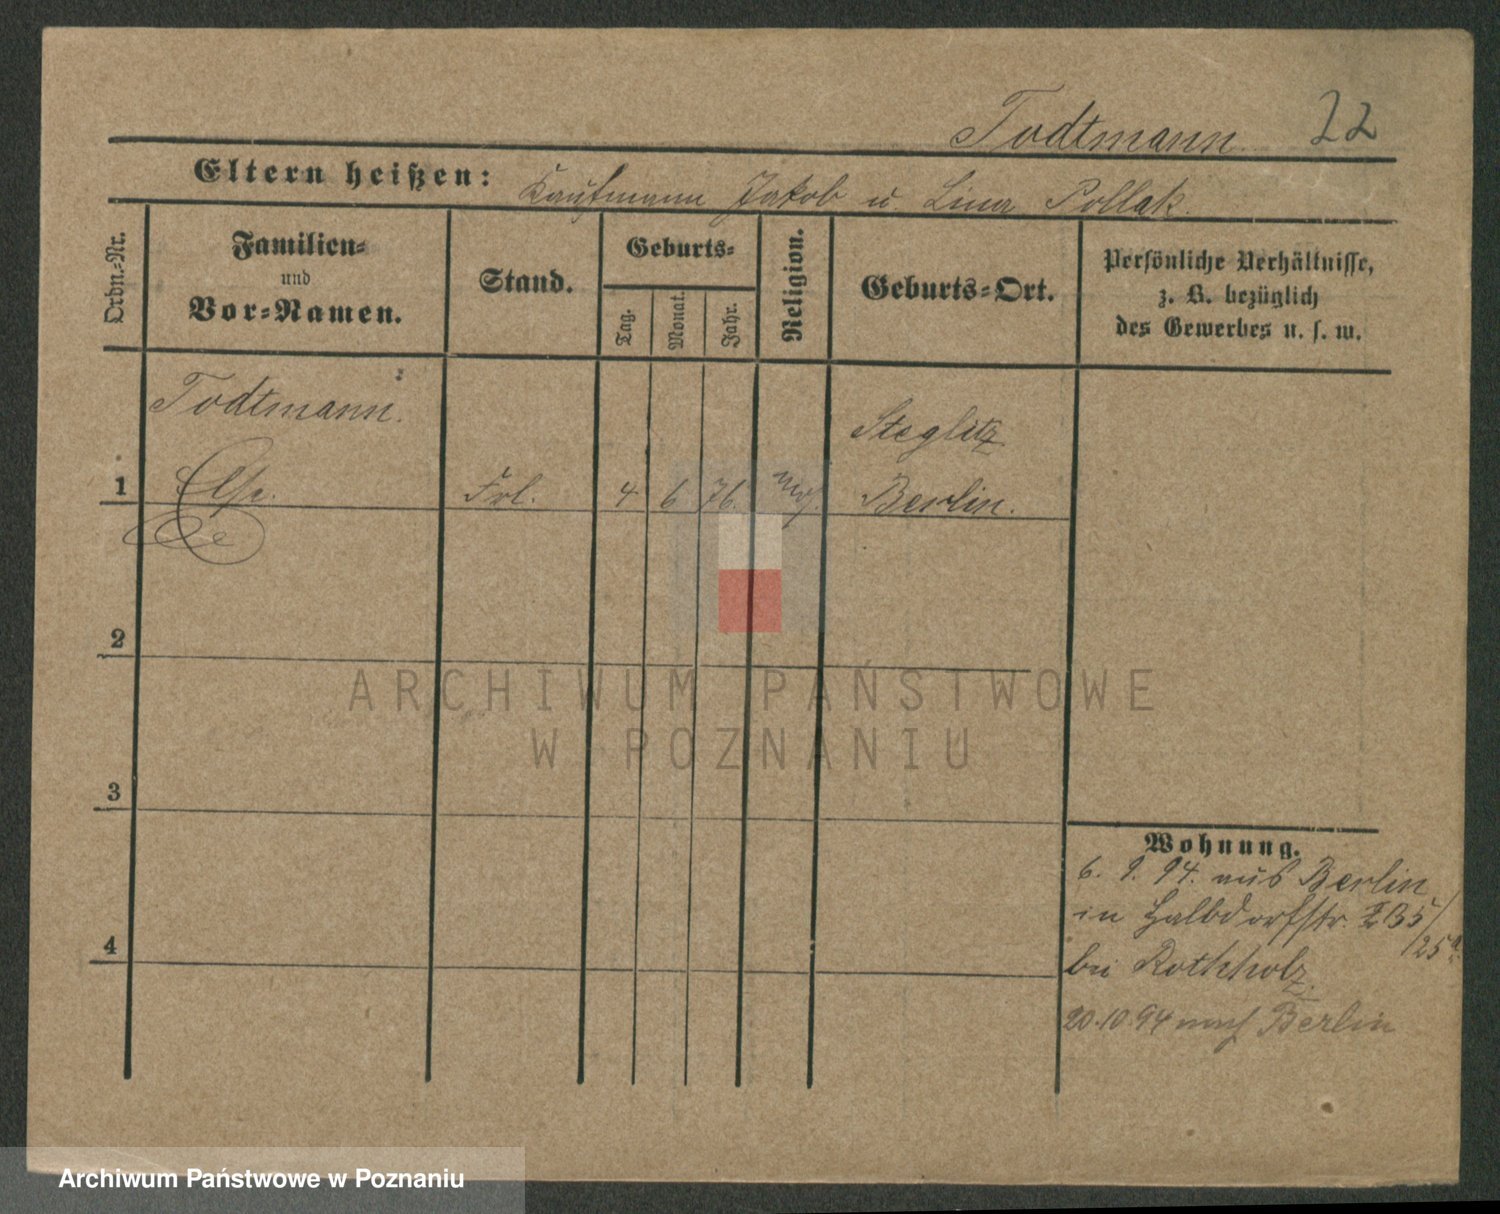 Todtmann 22
Eltern heißen: Kaufmann Jakob u. Lina Pollak.
Ordn.-Nr.
Familien-
und
Vor-Namen.
Stand.
Geburts-
Tag.
Monat.
Jahr.
Religion.
Geburts-Ort.
Persönliche Verhältnisse,
z. B. bezüglich
des Gewerbes u. s. w.
Todtmann.
Steglitz
1 Else. Frl. 4 6 76. mos. Berlin.
2
3
4
Wohnung.
6. 9. 94. aus Berlin
in Halbdorfstr. 5/
25a.
bei Rothholz.
20.10.94 nach Berlin
ARCHIWUM PAŃSTWOWE
W POZNANIU
Archiwum Państwowe w Poznaniu